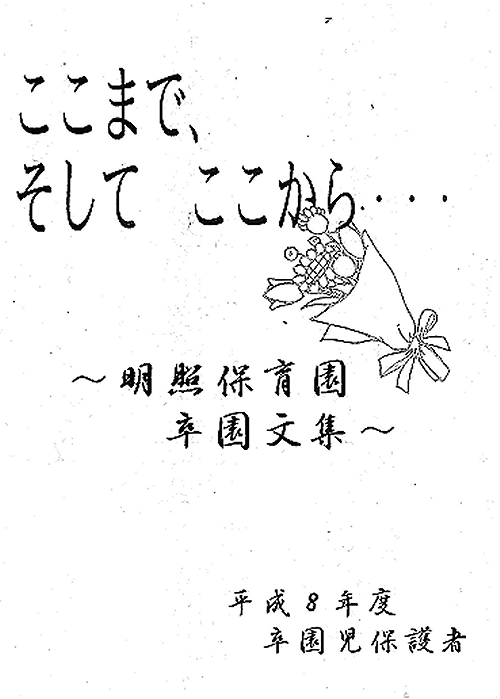 ここまで、
そして ここから・・・
～明照保育園
卒園文集～
平成8年度
卒園児保護者